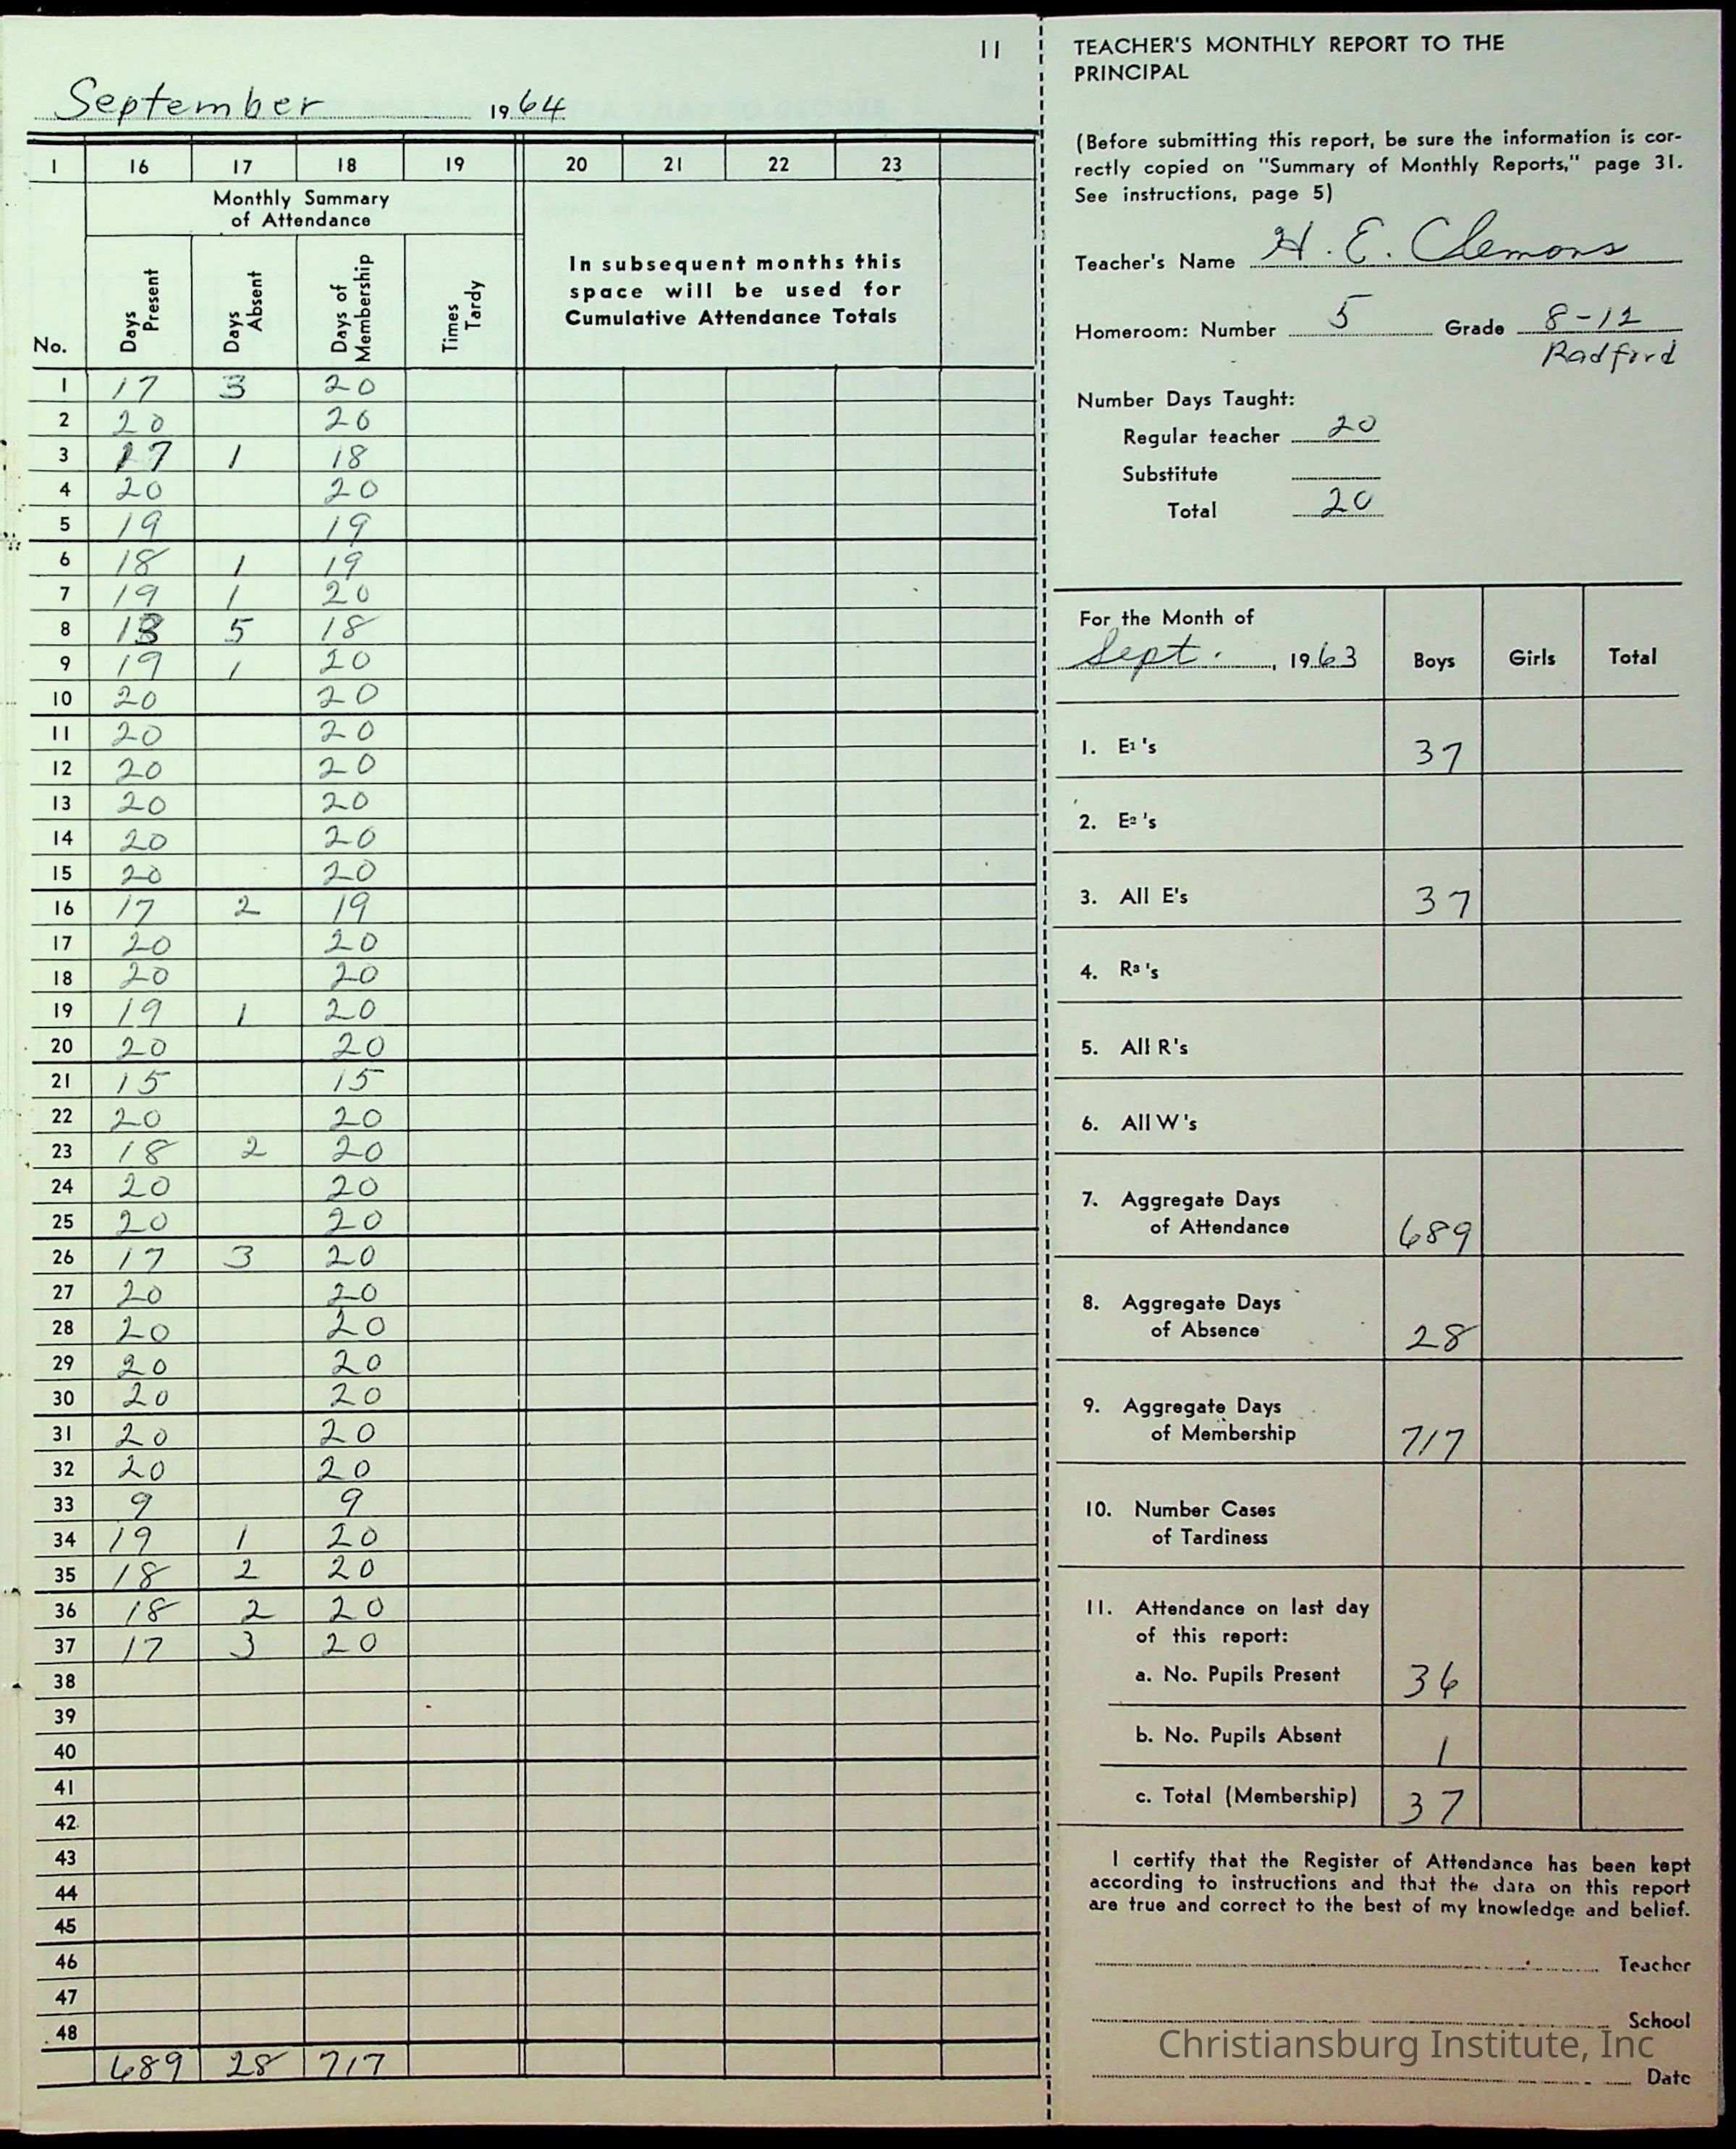 11
September 1964
1 16 17 18 19 20 21 22 23
Monthly Summary
of Attendance
No. Days Present Days Absent Days of Membership Times Tardy
In subsequent months this
space will be used for
Cumulative Attendance Totals
1 17 3 20
2 20 20
3 17 1 18
4 20 20
5 19 19
6 18 1 19
7 19 1 20
8 13 5 18
9 19 1 20
10 20 20
11 20 20
12 20 20
13 20 20
14 20 20
15 20 20
16 17 2 19
17 20 20
18 20 20
19 19 1 20
20 20 20
21 15 15
22 20 20
23 18 2 20
24 20 20
25 20 20
26 17 3 20
27 20 20
28 20 20
29 20 20
30 20 20
31 20 20
32 20 20
33 9 9
34 19 1 20
35 18 2 20
36 18 2 20
37 17 3 20
38
39
40
41
42
43
44
45
46
47
48
689 28 717
TEACHER'S MONTHLY REPORT TO THE
PRINCIPAL
(Before submitting this report, be sure the information is cor-
rectly copied on "Summary of Monthly Reports," page 31.
See instructions, page 5)
Teacher's Name H. E. Clemons
Homeroom: Number 5 Grade 8-12
Radford
Number Days Taught:
Regular teacher 20
Substitute
Total 20
For the Month of
Sept. , 1963 Boys Girls Total
1. E1's 37
2. E2's
3. All E's 37
4. R3's
5. All R's
6. All W's
7. Aggregate Days
of Attendance 689
8. Aggregate Days
of Absence 28
9. Aggregate Days
of Membership 717
10. Number Cases
of Tardiness
11. Attendance on last day
of this report:
a. No. Pupils Present 36
b. No. Pupils Absent 1
c. Total (Membership) 37
I certify that the Register of Attendance has been kept
according to instructions and that the data on this report
are true and correct to the best of my knowledge and belief.
Teacher
School
Christiansburg Institute, Inc
Date